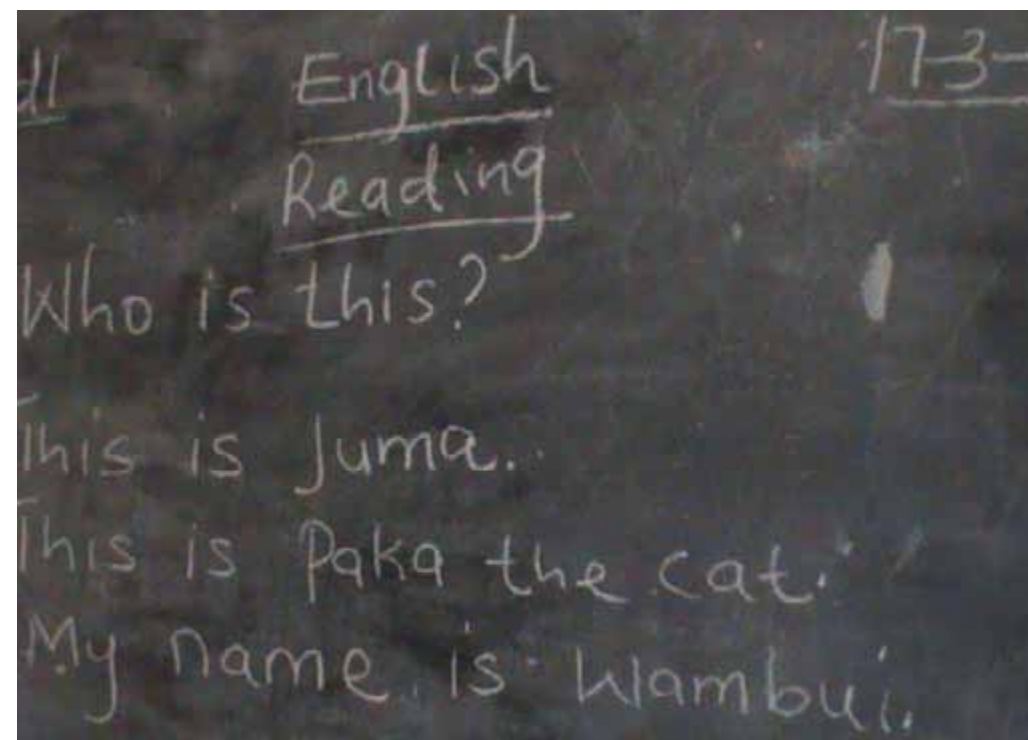 English 17-3-
Reading
Who is this?
This is Juma.
This is Paka the cat.
My name is Wambui.